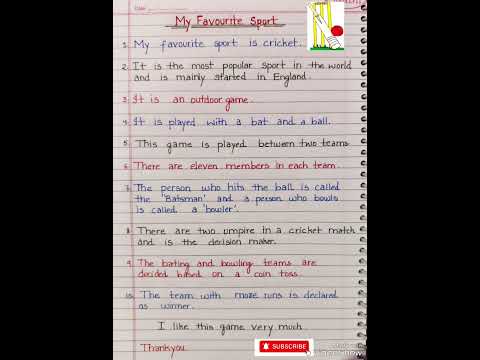 My Favourite Sport
1. My favourite sport is cricket.
2. It is the most popular sport in the world
and is mainly started in England.
3. It is an outdoor game.
4. It is played with a bat and a ball.
5. This game is played between two teams
6. There are eleven members in each team.
7. The person who hits the ball is called
the 'Batsman' and a person who bowls
is called a 'bowler'.
8. There are two umpire in a cricket match
and is the decision maker.
9. The bating and bowling teams are
decided based on a coin toss.
10. The team with more runs is declared
as winner.
I like this game very much.
Thankyou
SUBSCRIBE